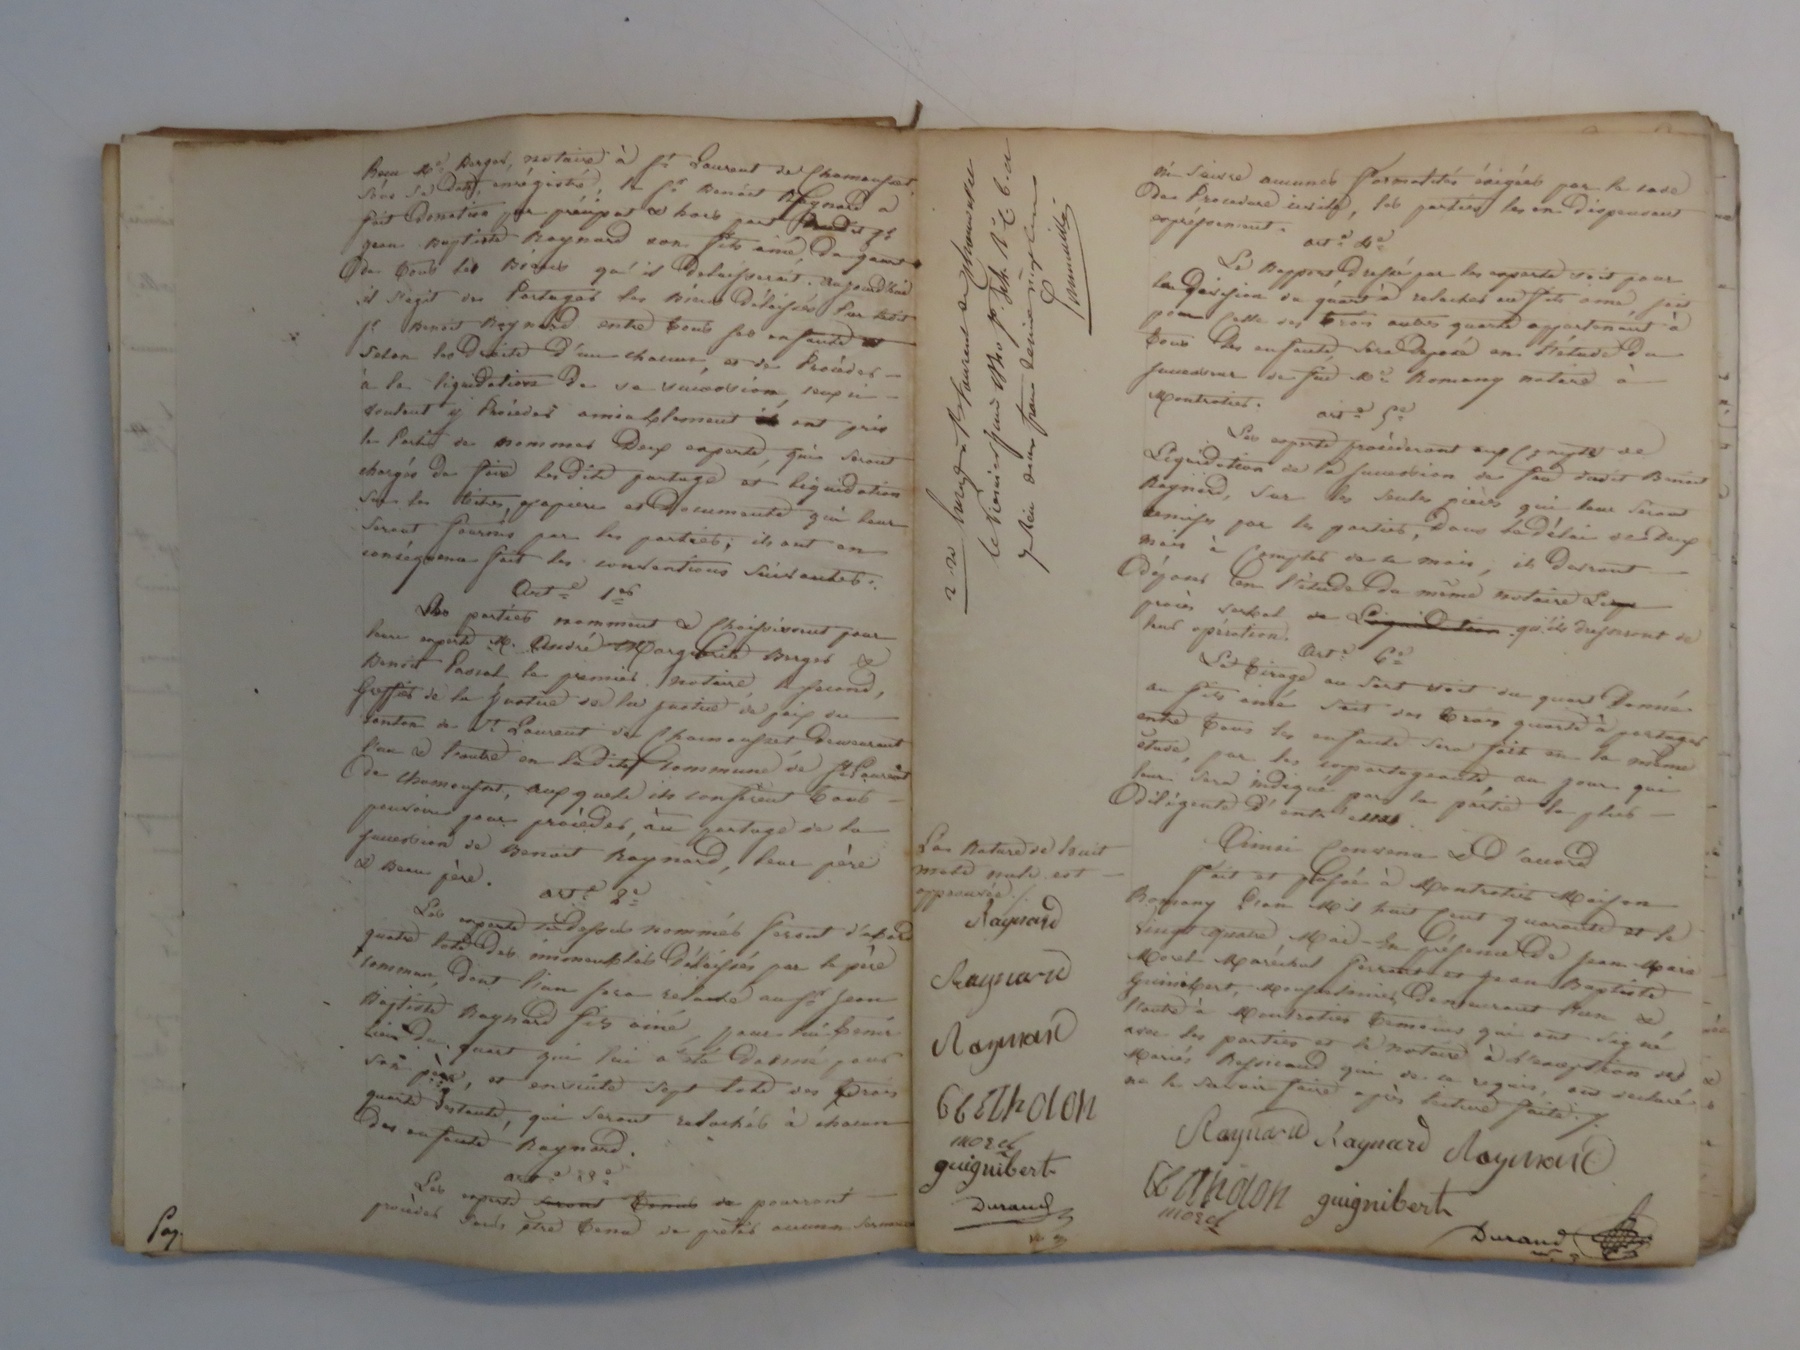 Reçu Me Berger, notaire à St Laurent de Chamousset,
sous sa date, enrégistré, le Sr Benoit Raynard a
fait donation par préciput & hors part audit Sr
Jean Baptiste Raynard son fils ainé, du quart
De tous les Biens qu'il délaisserait. aujourd'hui
il s'agit de Partager les Biens délaissés Par ledit
Sr Benoit Raynard entre tous ses enfants
Selon les Droits d'un chacun, et de Procéder
à la liquidation De sa succession, ceux-ci
voulant y Procéder amiablement ont pris
le Parti de nommer Deux experts, qui seront
chargés de faire lesdits partage et liquidation
sur les titres, papiers et documents qui leur
seront fournis par les parties; ils ont en
conséquence fait les conventions suivantes:
Arte 1er
Les parties nomment & choisissent pour
leurs experts M. André Marguerite Berger &
Benoit Pascal le premier notaire le second,
Greffier de la Justice de paix du
canton de St Laurent de Chamousset demeurant
l'un & l'autre en ladite Commune de St Laurent
De Chamousset, auxquels ils confèrent tous
pouvoirs pour procéder, au partage de la
succession de Benoit Raynard, leur père
& Beau père.
arte 2e
Les experts ci-dessus nommés feront d'abord
quatre lots des immeubles délaissés par le père
commun, dont l'un sera relaché au Sr Jean
Baptiste Raynard fils ainé, pour lui tenir
lieu du quart qui lui a été donné, par
son père, et ensuite sept lots des trois
quarts restants, qui seront relachés à chacun
Des enfants Raynard.
arte 3e
Les experts seront tenus de pourront
procéder sans être tenus de prêter aucun serment
Pag.
2.20
Enregistré à St Laurent de Chamousset
reçu deux francs décime vingt cent
La Rature de huit
mots nuls est
approuvée
Raynard
Raynard
Raynard
morel
guignibert
Durand
Ni suivre aucunes formalités éxigées par le code
De Procedure civile, les parties les en dispensant
expressément.
arte 4e
Le Rapport dressé par les experts soit pour
la Division du quart à relacher au fils ainé soit
pour celle des trois autres quarts appartenant à
tous les enfants sera déposé en l'étude du
successeur de feu Me Romany notaire à
Montrotier.
arte 5e
Les experts procéderont aux Comptes de
Liquidation de la succession de feu dudit Benoit
Raynard, sur les seules pièces qui leur seront
remises par les parties, Dans le délai de Deux
mois à compter de ce mois, ils devront
déposer en l'étude du même notaire Leur
procès verbal de Liquidation qu'ils dresseront de
leur opération.
Arte 6e
Le tirage au sort soit du quart Donné
au fils ainé soit des trois quarts à partager
entre tous les enfants sera fait en la même
étude, par les copartageants, au jour qui
leur sera indiqué par la partie la plus
Diligente d'entr'eux.
Ainsi Convenu & D'accord
Fait et passé à Montrotier Maison
Romany L'an Mil huit cent quarante et le
vingt quatre Mai - En Présence de Jean Marie
Morel Maréchal ferrant et Jean Baptiste
Guignibert, demeurant l'un &
l'autre à Montrotier temoins qui ont signé
avec les parties et le notaire à l'exception des
Mariés qui de ce requis, ont déclaré
ne le savoir faire après lecture faite.
Raynard Raynard Raynard
guignibert
morel
Durand